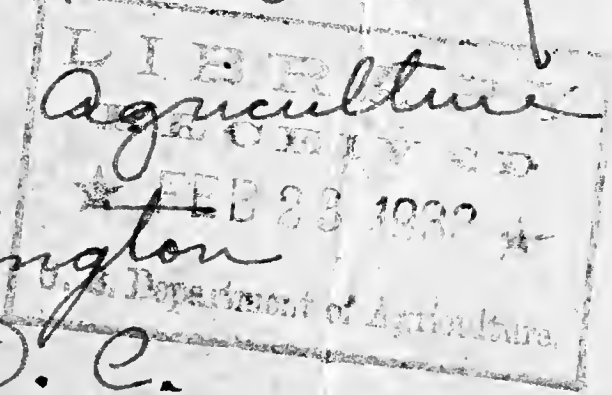 LIBRARY
Agriculture
RECEIVED
★ FEB 23 1932 ★
ngton
U. S. Department of Agriculture
D. C.